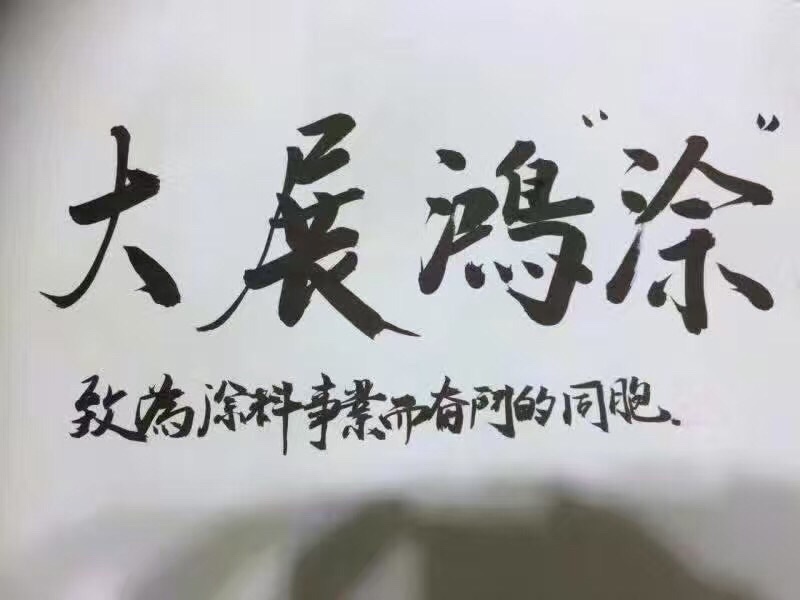 大展鴻“涂”
致為涂料事業而奋鬥的同胞.